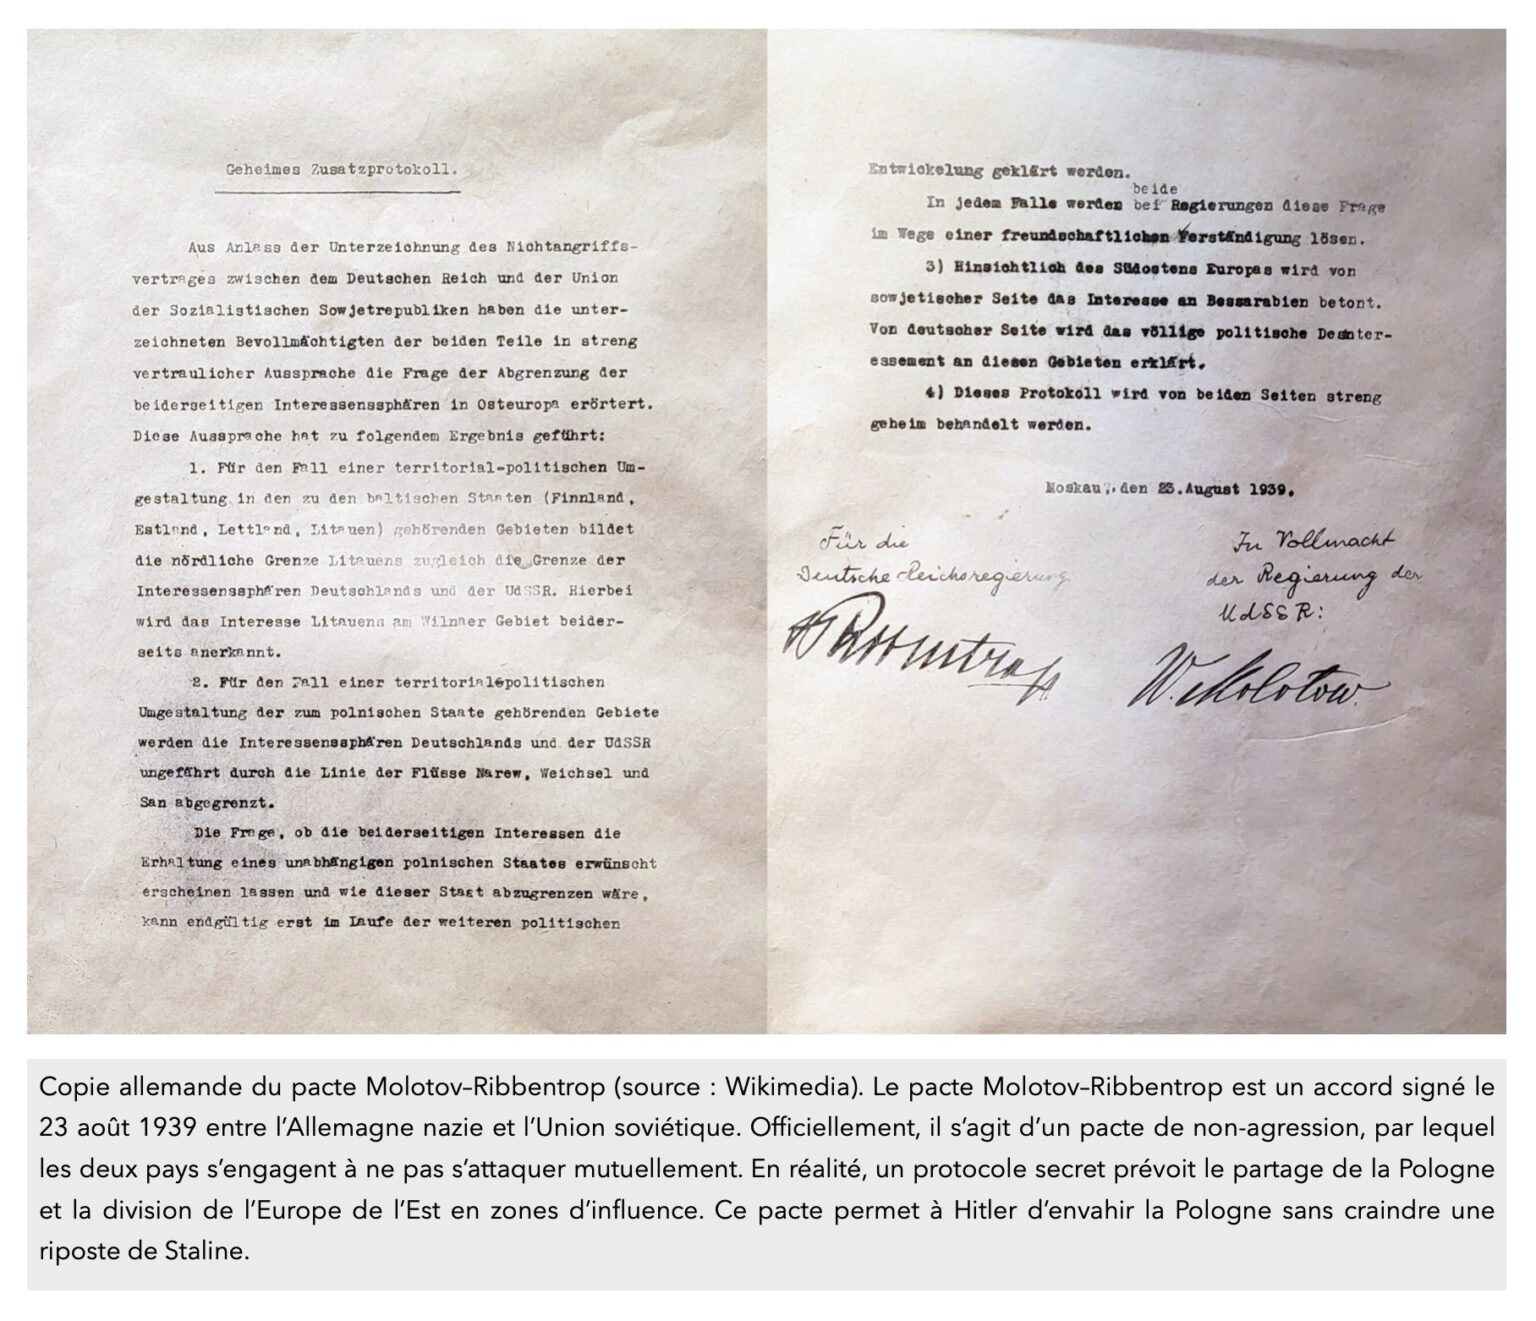 Geheimes Zusatzprotokoll.
Aus Anlass der Unterzeichnung des Nichtangriffs-
vertrages zwischen dem Deutschen Reich und der Union
der Sozialistischen Sowjetrepubliken haben die unter-
zeichneten Bevollmächtigten der beiden Teile in streng
vertraulicher Aussprache die Frage der Abgrenzung der
beiderseitigen Interessenssphären in Osteuropa erörtert.
Diese Aussprache hat zu folgendem Ergebnis geführt:
1. Für den Fall einer territorial-politischen Um-
gestaltung in den zu den baltischen Staaten (Finnland,
Estland, Lettland, Litauen) gehörenden Gebieten bildet
die nördliche Grenze Litauens zugleich die Grenze der
Interessenssphären Deutschlands und der UdSSR. Hierbei
wird das Interesse Litauens am Wilnaer Gebiet beider-
seits anerkannt.
2. Für den Fall einer territorial-politischen
Umgestaltung der zum polnischen Staate gehörenden Gebiete
werden die Interessenssphären Deutschlands und der UdSSR
ungefährt durch die Linie der Flüsse Narew, Weichsel und
San abgegrenzt.
Die Frage, ob die beiderseitigen Interessen die
Erhaltung eines unabhängigen polnischen Staates erwünscht
erscheinen lassen und wie dieser Staat abzugrenzen wäre,
kann endgültig erst im Laufe der weiteren politischen
Entwickelung geklärt werden.
beide
In jedem Falle werden bei Regierungen diese Frage
im Wege einer freundschaftlichen Verständigung lösen.
3) Hinsichtlich des Südostens Europas wird von
sowjetischer Seite das Interesse an Bessarabien betont.
Von deutscher Seite wird das völlige politische Desinter-
essement an diesen Gebieten erklärt.
4) Dieses Protokoll wird von beiden Seiten streng
geheim behandelt werden.
Moskau, den 23. August 1939.
Für die
Deutsche Reichsregierung
Ribbentrop
In Vollmacht
der Regierung der
UdSSR:
W. Molotow
Copie allemande du pacte Molotov–Ribbentrop (source : Wikimedia). Le pacte Molotov–Ribbentrop est un accord signé le
23 août 1939 entre l’Allemagne nazie et l’Union soviétique. Officiellement, il s’agit d’un pacte de non-agression, par lequel
les deux pays s’engagent à ne pas s’attaquer mutuellement. En réalité, un protocole secret prévoit le partage de la Pologne
et la division de l’Europe de l’Est en zones d’influence. Ce pacte permet à Hitler d’envahir la Pologne sans craindre une
riposte de Staline.